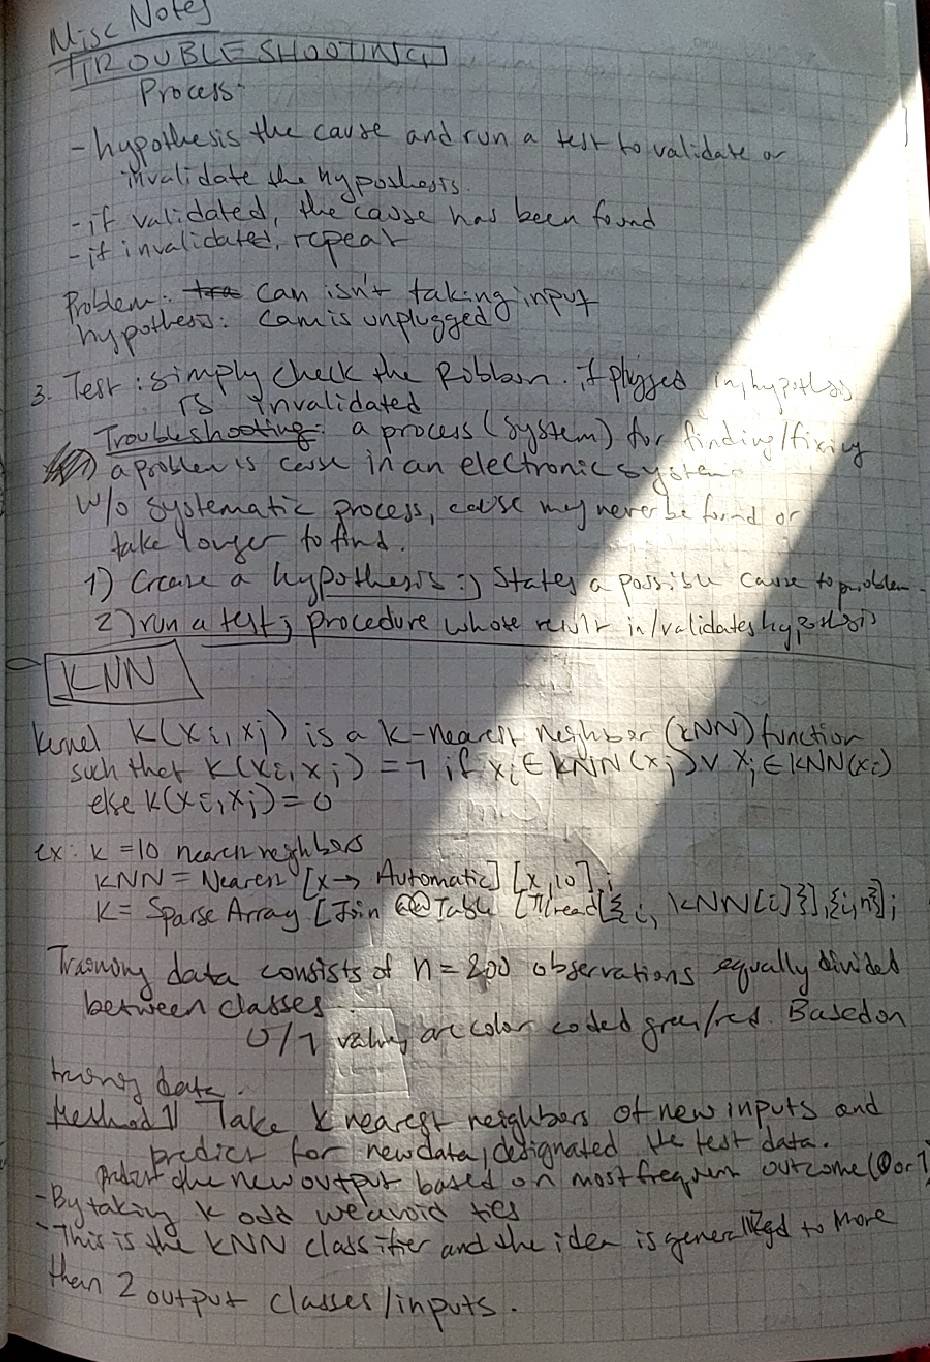 Misc Notes
TROUBLESHOOTING
Process:
- hypothesis the cause and run a test to validate or
invalidate the hyposthesis.
- if validated, the cause has been found
- if invalidated, repeat
Problem: can isn't taking input
hypothesis: cam is unplugged
3. Test: simply check the Problem. if plugged in, hypothesis
is invalidated
Troubleshooting: a process (system) for finding/fixing
a problem is cause in an electronic system.
w/o systematic process, cause may never be found or
take longer to find.
1) Create a hypothesis :; States a possible cause to problem.
2) run a test; procedure whose result in/validates hypothesis
KNN
Kernel K(xi, xj) is a k-nearest neighbor (kNN) function
such that K(xi, xj) = 1 if xi ∈ kNN(xj) ∨ xj ∈ kNN(xi)
else K(xi, xj) = 0
ex: k = 10 nearest neighbors
KNN = Nearest [x → Automatic] [x, 10];
K = Sparse Array [Join @@ Table [Thread[{i, kNN[i]}], {i, n}];
Training data consists of n = 200 observations equally divided
between classes.
0/1 values are color coded green/red. Based on
training data.
Method 1) Take k nearest neighbers of new inputs and
predict for new data, designated the test data.
predict the new output based on most frequent outcome (0 or 1)
- By taking k odd we avoid ties
- This is the KNN classifier and the idea is generalized to more
than 2 output classes/inputs.